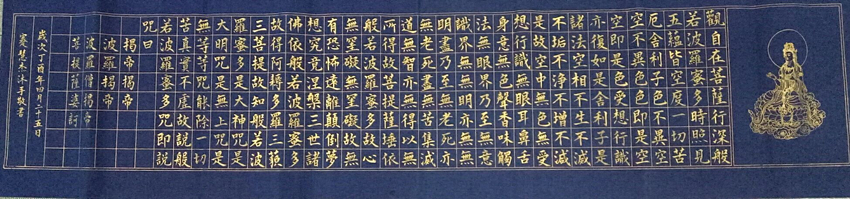 觀自在菩薩行深般
若波羅蜜多時照見
五蘊皆空度一切苦
厄舍利子色不異空
空不異色色即是空
空即是色受想行識
亦復如是舍利子是
諸法空相不生不滅
不垢不淨不增不減
是故空中無色無受
想行識無眼耳鼻舌
身意無色聲香味觸
法無眼界乃至無意
識界無無明亦無無
明盡乃至無老死亦
無老死盡無苦集滅
道無智亦無得以無
所得故菩提薩埵依
般若波羅蜜多故心
無罣礙無罣礙故無
有恐怖遠離顛倒夢
想究竟涅槃三世諸
佛依般若波羅蜜多
故得阿耨多羅三藐
三菩提故知般若波
羅蜜多是大神咒是
大明咒是無上咒是
無等等咒能除一切
苦真實不虛故說般
若波羅蜜多咒即說
咒曰
揭帝揭帝
波羅揭帝
波羅僧揭帝
菩提薩婆訶
歲次丁酉年四月二十五日
沐手敬書